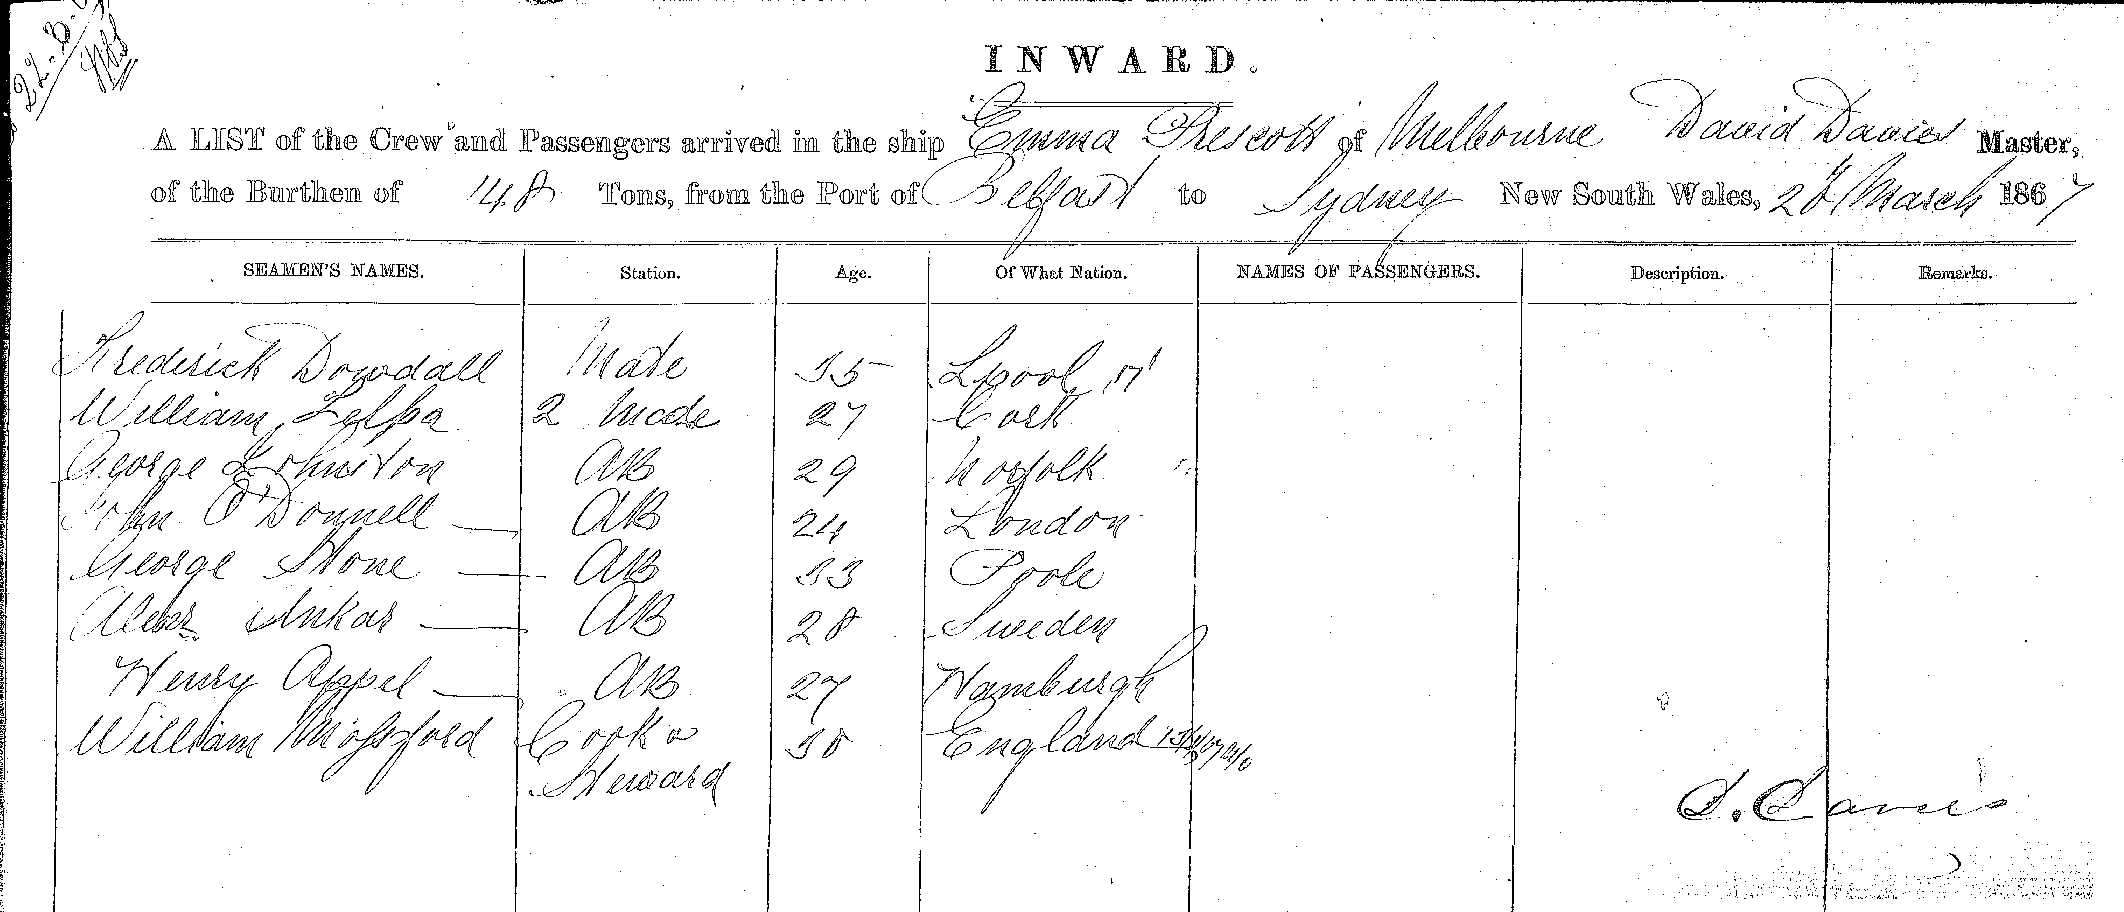 22.3.
INWARD.
A LIST of the Crew and Passengers arrived in the ship Emma Prescott of Melbourne David Davies Master,
of the Burthen of 148 Tons, from the Port of Belfast to Sydney New South Wales, March 1867
SEAMEN'S NAMES. Station. Age. Of What Nation. NAMES OF PASSENGERS. Description. Remarks.
Frederick Dowdall Mate 35 Lpool
William 2 Mate 27 Cork
George Johnston AB 29 Norfolk
John O'Donnell AB 24 London
George Stone AB 33 Poole
Alexr Ankar AB 28 Sweden
Henry Appel AB 27 Hamburgh
William Mossford Cook & 30 England
Steward
D. Davies